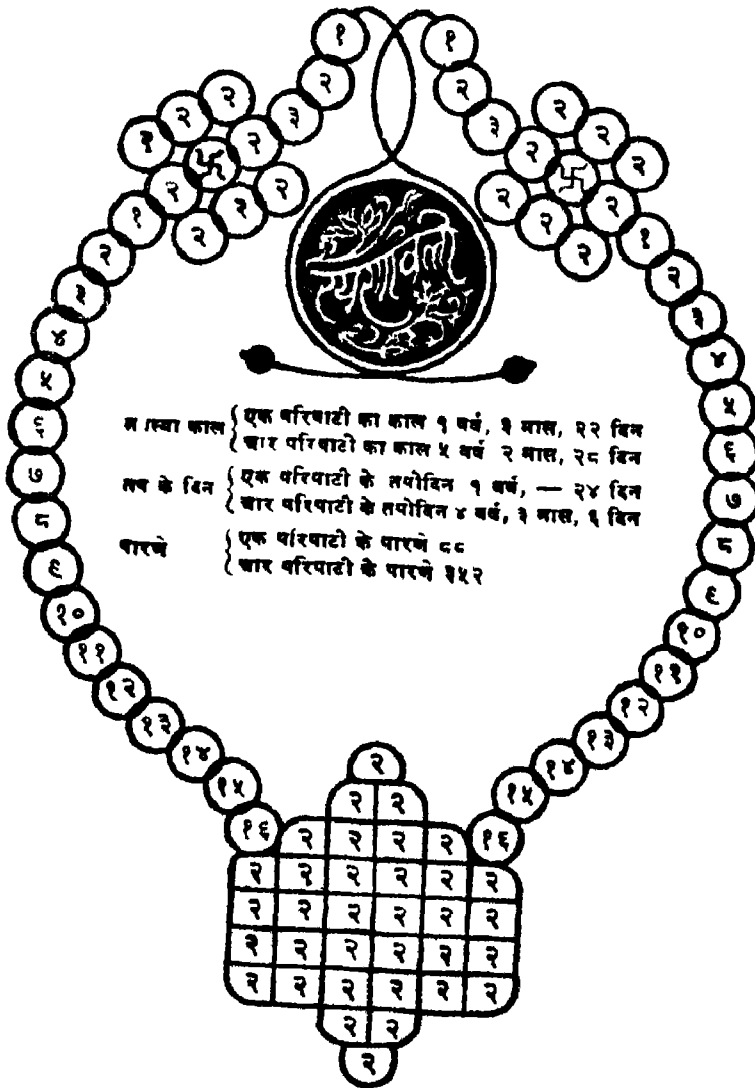 १
२
३
२
२ २
२
२ २
१
२
३
४
५
६
७
८
९
१०
११
१२
१३
१४
१५
१६
१
२
३
२
२ २ २
२ २ २
२
१
२
३
४
५
६
७
८
९
१०
११
१२
१३
१४
१५
१६
काल { एक परिपाटी का काल १ वर्ष, ३ मास, २२ दिन
चार परिपाटी का काल ५ वर्ष २ मास, २८ दिन
तप के दिन { एक परिपाटी के तपोदिन १ वर्ष, — २४ दिन
चार परिपाटी के तपोदिन ४ वर्ष, ३ मास, ६ दिन
पारणे { एक परिपाटी के पारणे ८८
चार परिपाटी के पारणे ३५२
२
२ २
२ २ २ २
२ २ २ २ २ २
२ २ २ २ २ २
२ २ २ २ २ २
२ २ २ २ २ २
२ २
२